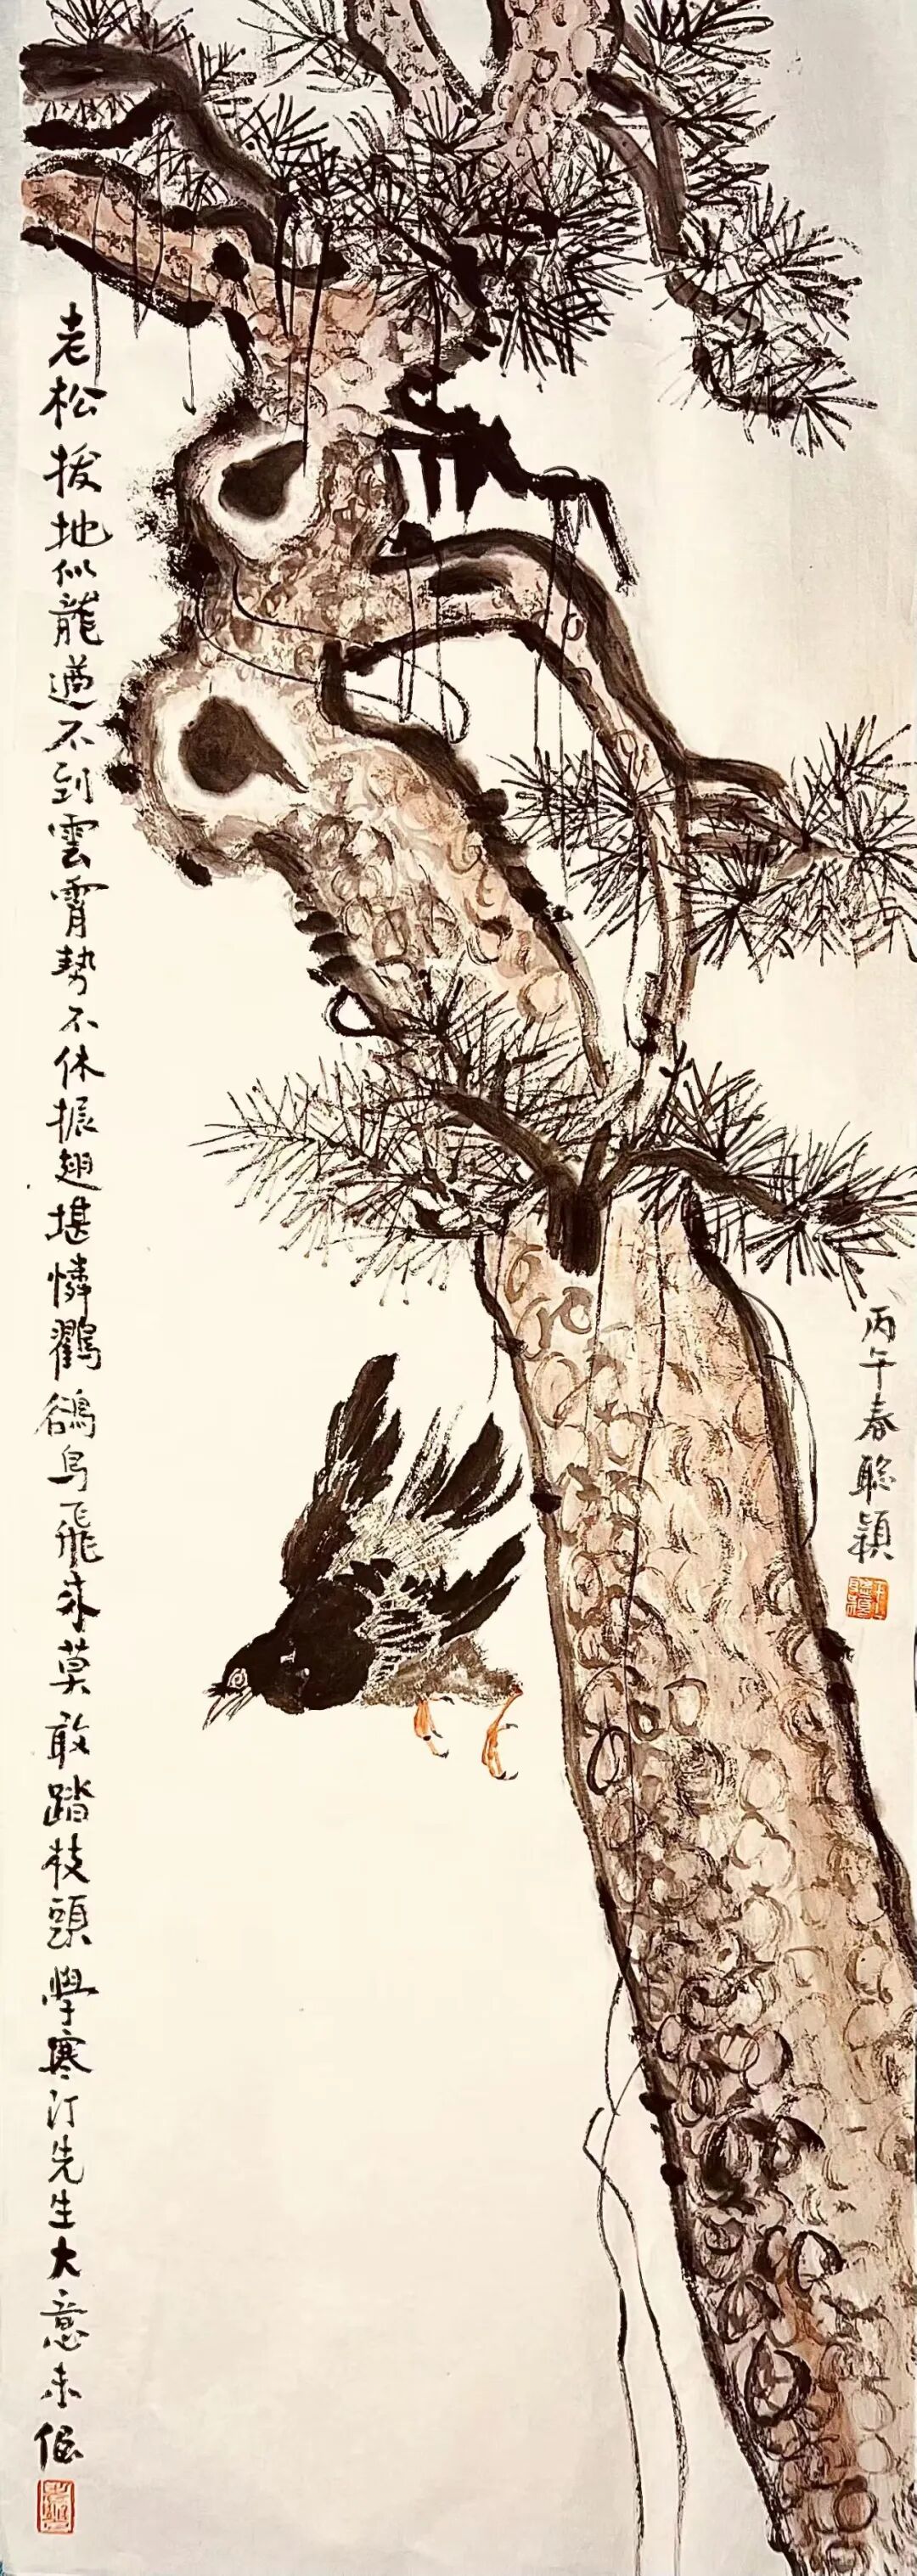 老松拔地似龍遒不到雲霄勢不休振翅堪憐鸜鵒鳥飛來莫敢踏枝頭學寒汀先生大意未佀
丙午春聰穎